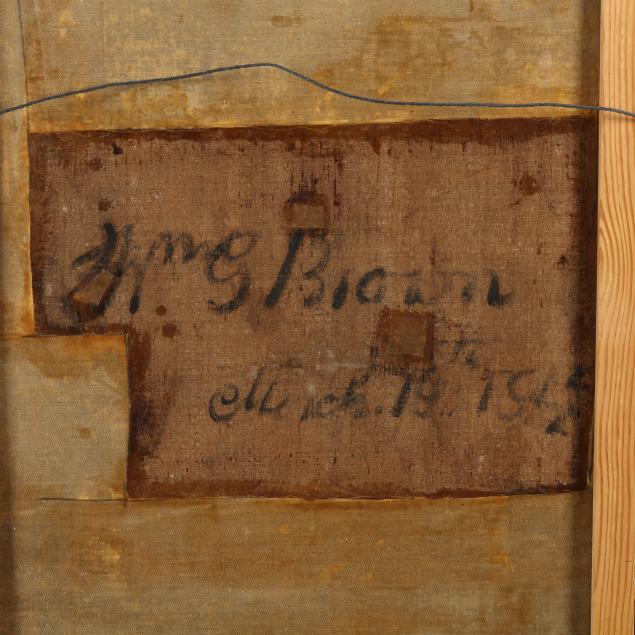 Wm G Brown
March. 19th